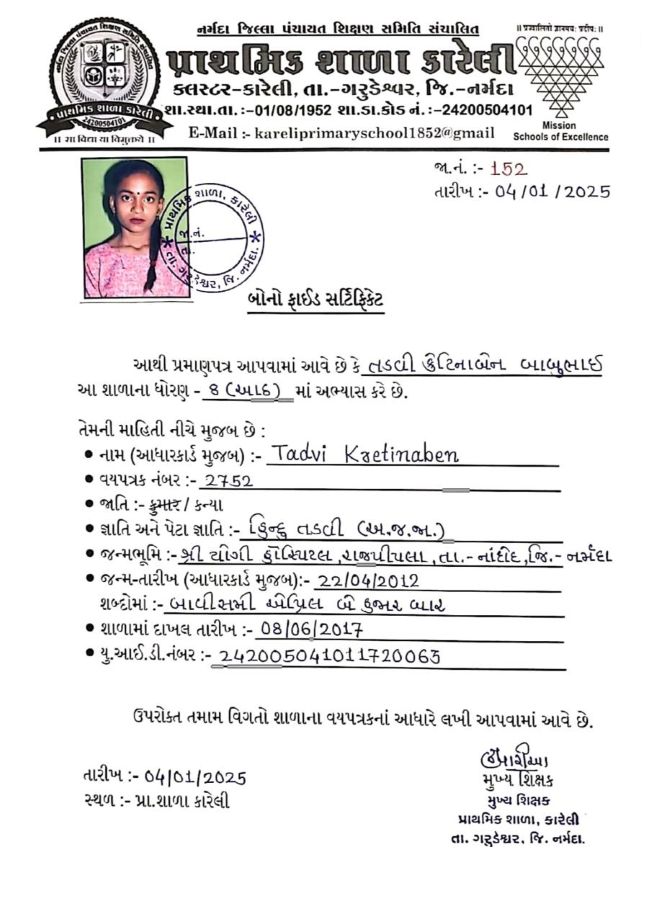 નર્મદા જિલ્લા પંચાયત શિક્ષણ સમિતિ સંચાલિત
પ્રાથમિક શાળા કારેલી
ક્લસ્ટર-કારેલી, તા.-ગરુડેશ્વર, જિ.-નર્મદા
શા.સ્થા.તા. :-01/08/1952 શા.ડા.કોડ નં. :-24200504101
E-Mail :- kareliprimaryschool1852@gmail
પ્રાથમિક શાળા કારેલી
24200504101
|| સા વિદ્યા યા વિમુક્તયે ||
Mission
Schools of Excellence
જા.નં. :- 152
તારીખ :- 04/01/2025
પ્રાથમિક શાળા, કારેલી
જા.નં.
તા.
તા. ગરુડેશ્વર, જિ. નર્મદા.
બોનો ફાઈડ સર્ટિફિકેટ
આથી પ્રમાણપત્ર આપવામાં આવે છે કે તડવી ક્રેટિનાબેન બાબુભાઈ
આ શાળાના ધોરણ - ૪ (આઠ) માં અભ્યાસ કરે છે.
તેમની માહિતી નીચે મુજબ છે :
• નામ (આધારકાર્ડ મુજબ) :- Tadvi Kretinaben
• વયપત્રક નંબર :- 2752
• જાતિ :- કુમાર / કન્યા
• જ્ઞાતિ અને પેટા જ્ઞાતિ :- હિન્દુ તડવી (અ.જ.જા.)
• જન્મભૂમિ :- શ્રી યોગી હોસ્પિટલ, રાજપીપલા, તા.- નાંદોદ, જિ.- નર્મદા
• જન્મ-તારીખ (આધારકાર્ડ મુજબ):- 22/04/2012
શબ્દોમાં :- બાવીસમી એપ્રિલ બે હજાર બાર
• શાળામાં દાખલ તારીખ :- 08/06/2017
• યુ.આઈ.ડી.નંબર :- 242005041011720063
ઉપરોક્ત તમામ વિગતો શાળાના વયપત્રકનાં આધારે લખી આપવામાં આવે છે.
તારીખ :- 04/01/2025
સ્થળ :- પ્રા.શાળા કારેલી
મુખ્ય શિક્ષક
મુખ્ય શિક્ષક
પ્રાથમિક શાળા, કારેલી
તા. ગરુડેશ્વર, જિ. નર્મદા.